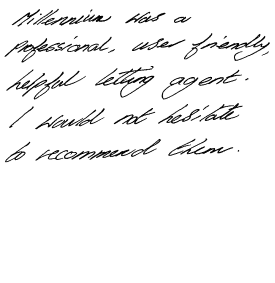 Millennium was a
professional, user friendly,
helpful letting agent.
I would not hesitate
to recommend them.